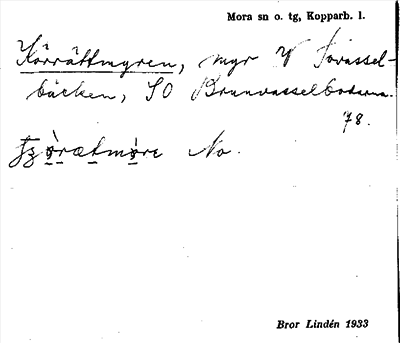 Mora sn o. tg, Kopparb. l.
Körrättmyren, myr V Tovassel-
bäcken, SO Brunvasselbodarna.
78.
No.
Bror Lindén 1933